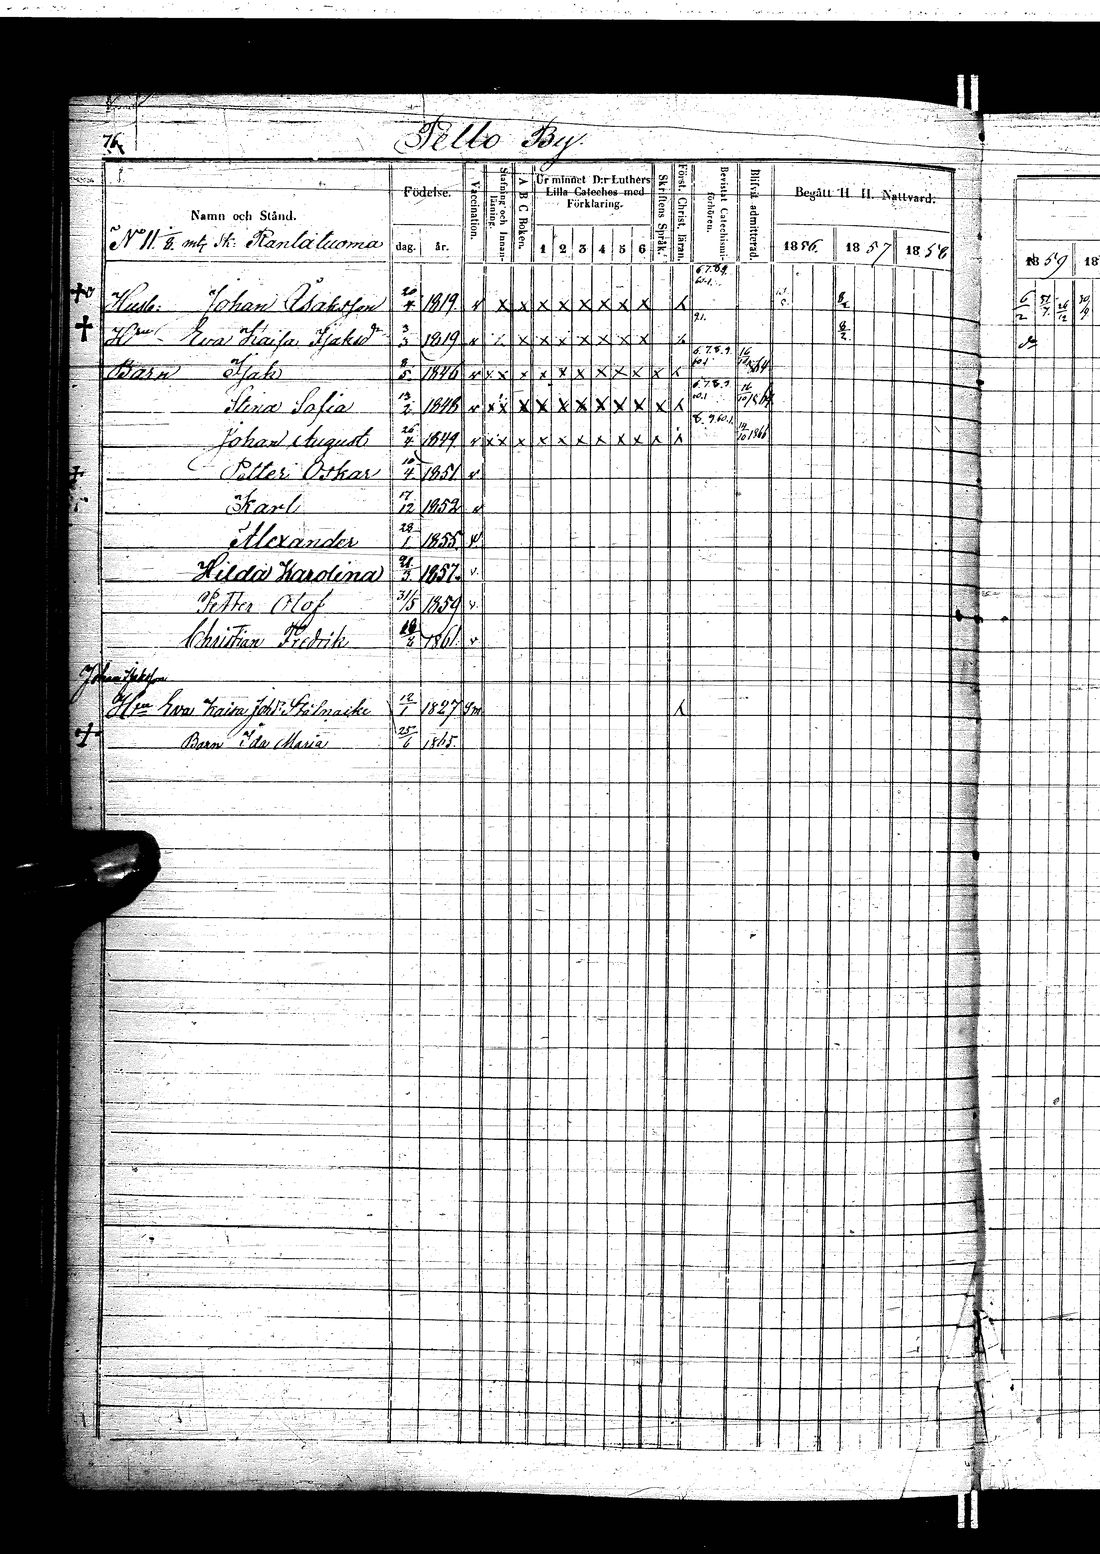 76.
Pello By.
Namn och Stånd.
Födelse.
dag. år.
Vaccination.
Stafning och Innan-läsning.
A B C Boken.
Ur minnet D:r Luthers Lilla Cateches med Förklaring.
1 2 3 4 5 6
Skriftens Språk.
Först. Christ. läran.
Bevistat Catechismi-förhören.
Blifvit admitterad.
Begått H. H. Nattvard.
1856. 1857 1858
1859 18
N:o 11. 1/8 mtl Sk: Rantatuoma
Husb: Johan Isaksson 20/4 1819. v x x x x x x x x x 6.7.8.9. 60.1. 8/2
H:ru Eva Kaisa Isaksd:r 3/3 1819 v x x x x x x x x x 8/2
Barn Isak 8/5 1846 v x x x x x x x x x x x 6.7.8.9. 60.1 16/10 1864
Stina Sofia 13/2 1848 v x x x x x x x x x x x 6.7.8.9 60.1 16/10 1864
Johan August 26/4 1849 v x x x x x x x x x x x 8.9.60.1. 14/10 1866
Petter Oskar 10/4 1851 v
Karl 17/12 1852 v
Alexander 28/1 1855. v.
Hilda Karolina 21/3 1857. v.
Petter Olof 31/5 1859 v.
Christian Fredrik 1861. v
Johan Isaksson
H:ru Eva Kaisa Joh:d:r Stålnacke 12/1 1827 x
Barn Ida Maria 25/6 1865.